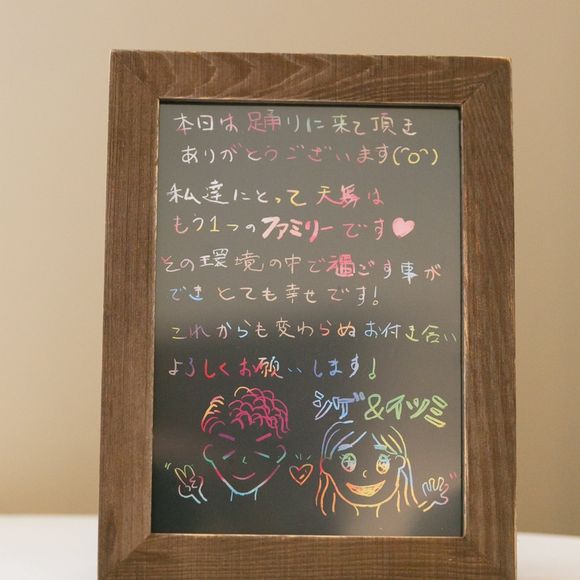 本日は踊りに来て頂き
ありがとうございます(^o^)
私達にとって天舞は
もう1つのファミリーです♥
その環境の中で過ごす事が
でき とても幸せです!
これからも変わらぬお付き合い
よろしくお願いします♩
シゲ&イツミ